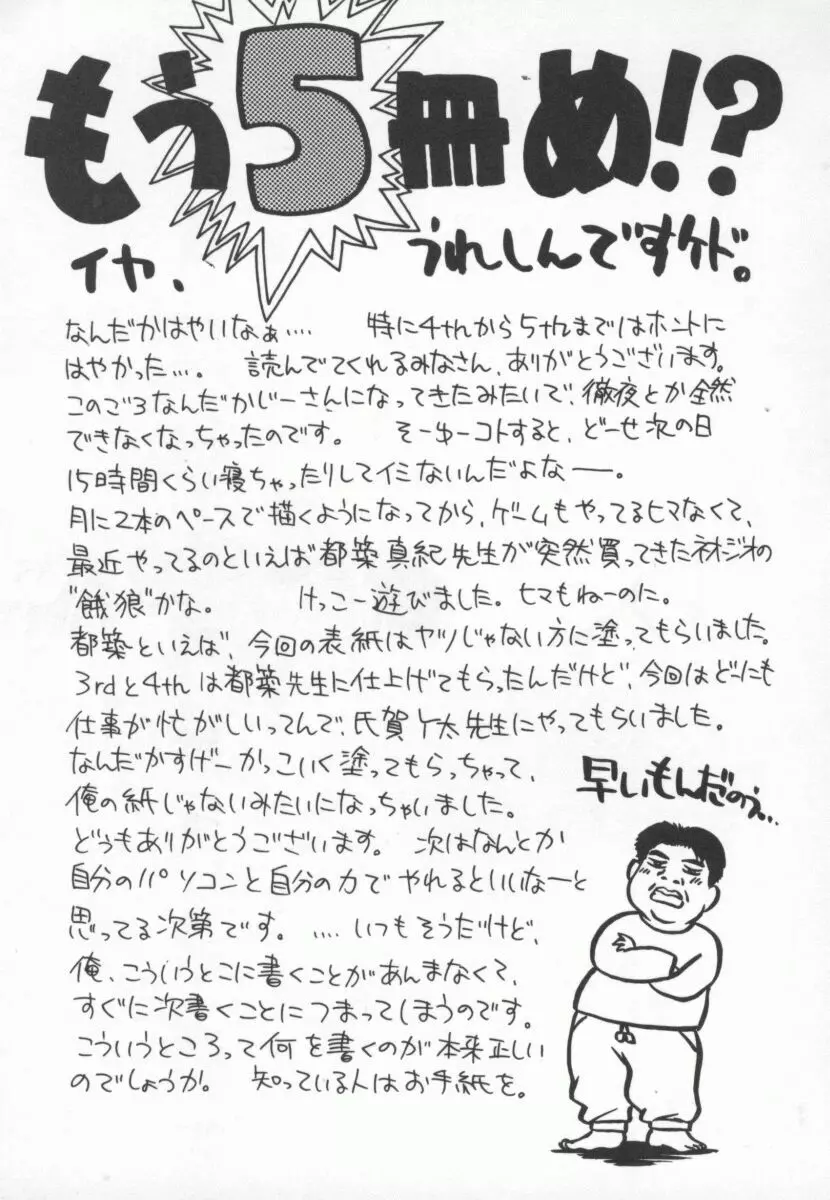 もう5冊め!?
イヤ、 うれしんですケド。
なんだかはやいなぁ‥‥ 特に4thから5thまではホントに
はやかった‥‥。 読んでてくれるみなさん、ありがとうございます。
このごろなんだかじーさんになってきたみたいで、徹夜とか全然
できなくなっちゃったのです。 そーゆーコトすると、どーせ次の日
15時間くらい寝ちゃったりしてイミないんだよなー。
月に2本のペースで描くようになってから、ゲームもやってるヒマなくて、
最近やってるのといえば都築真紀先生が突然買ってきたネオジオの
"餓狼"かな。 けっこー遊びました。ヒマもねーのに。
都築といえば、今回の表紙はヤツじゃない方に塗ってもらいました。
3rdと4thは都築先生に仕上げてもらったんだけど、今回はどーにも
仕事が忙がしいってんで、氏賀Y太先生にやってもらいました。
なんだかすげーかっこいく塗ってもらっちゃって、
俺の紙じゃないみたいになっちゃいました。
どうもありがとうございます。 次はなんとか
自分のパソコンと自分の力でやれるといいなーと
思ってる次第です。 ‥‥いつもそうだけど、
俺、こういうとこに書くことがあんまなくて、
すぐに次書くことにつまってしまうのです。
こういうところって何を書くのが本来正しい
のでしょうか。 知っている人はお手紙を。
早いもんだのう‥‥